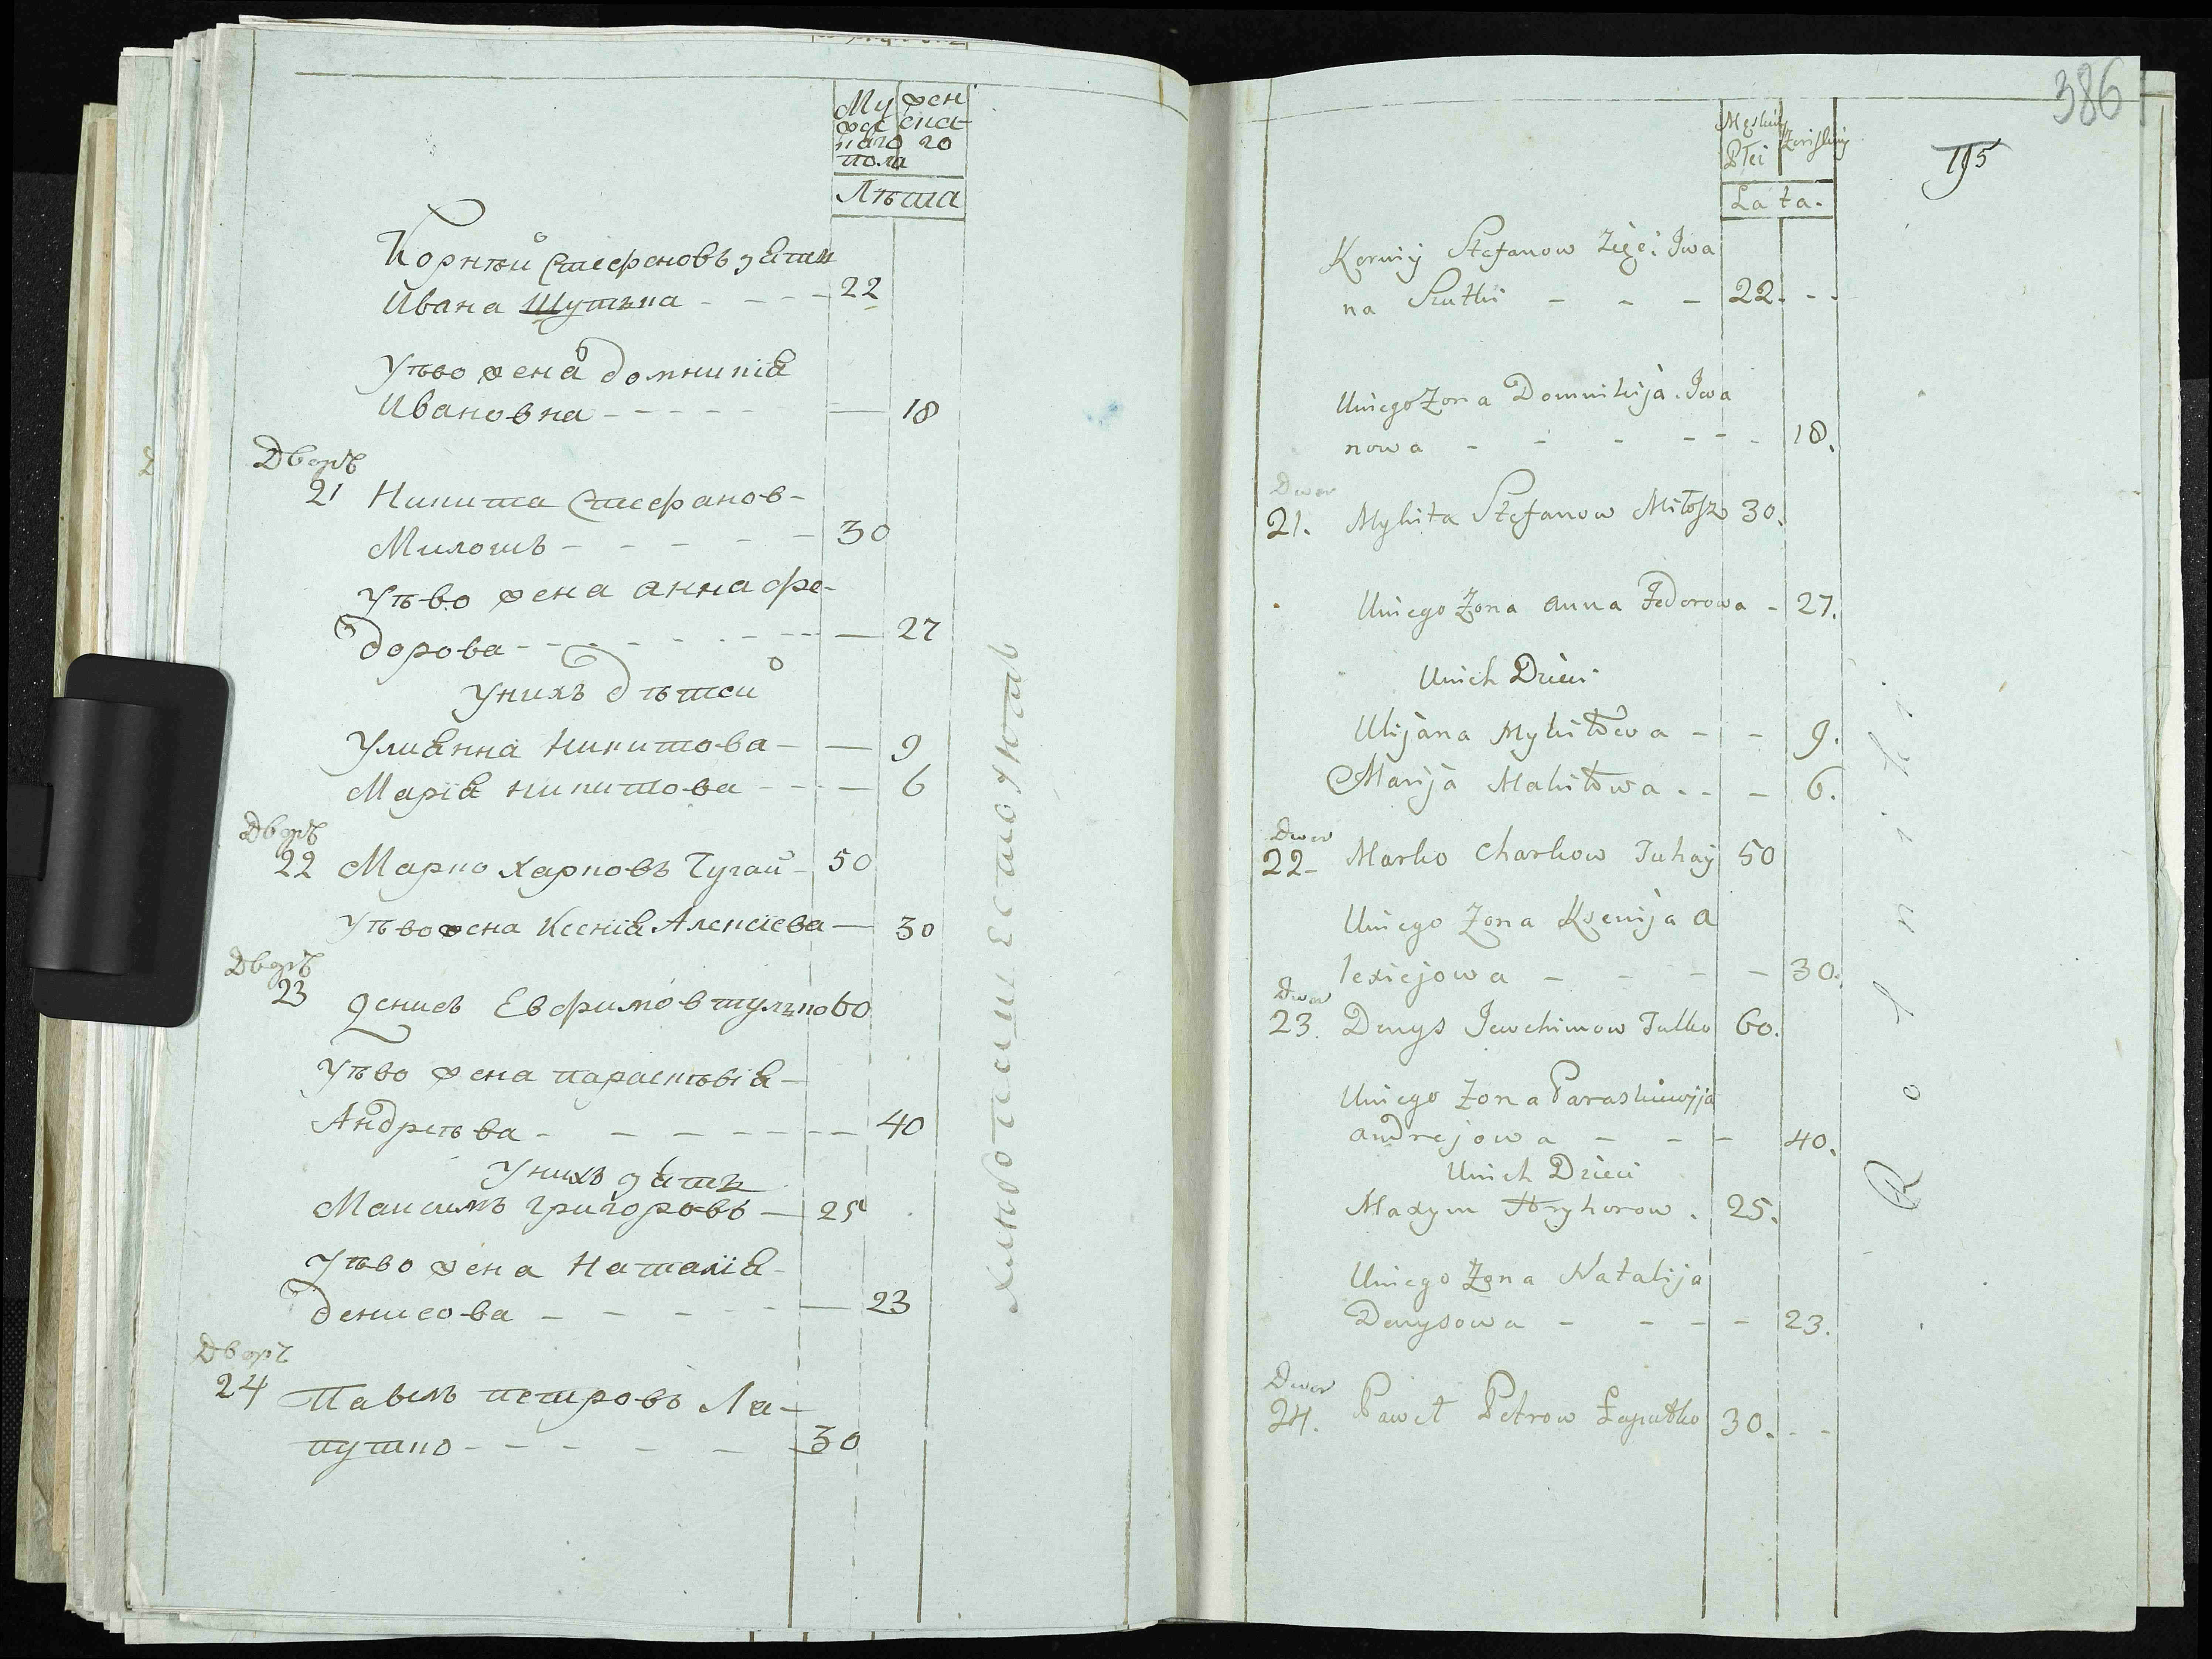 Му жен
жес ска
каго го
пола
Лѣта
Корнѣй Стефановъ зять
Ивана Шутька - - - - 22
У него жена Домникія
Ивановна - - - - - — 18
Дворъ
21 Никита Стефанов-
Милошъ - - - - - 30
У нѣво жена Анна Фе-
дорова - - - - - - — 27
У нихъ дѣтей
Улиянна Никитова - — 9
Марія Никитова - - - — 6
Дворъ
22 Марко Харковъ Тугай - 50
У нѣво жена Ксенія Алексіева — 30
Дворъ
23 Денисъ Евфимов Тулько 60
У нѣво жена Параскевія -
Андреѣва - - - - - - - 40
У нихъ зять
Максимъ Григоровъ — 25
У нѣво жена Наталія -
Денисова - - - - - — 23
Дворъ
24 Павелъ Петровъ Ла-
путко - - - - - - 30
хлѣбопашествуютъ
386
195
Męskiey Żeńskiey
Płci
Lata.
Korniy Stefanow Zięć Iwa
na Szutki - - - 22. - -
Uniego Żona Domnikija Iwa
nowa - - - - - - 18.
Dwor
21. Mykita Stefanow Miłosz 30.
Uniego Żona Anna Fedorowa - 27.
Unich Dzieci
Ulijana Mykitowa - - 9.
Marija Makitowa . - - 6.
Dwor
22 - Marko Charkow Tuhay 50
Uniego Żona Ksenija A
lexiejowa - - - - 30.
Dwor
23. Denys Jewchimow Tulko 60.
Uniego Żona Paraskiewija
Andrejowa - - - 40.
Unich Dzieci
Maxym Hryhorow . 25.
Uniego Żona Natalija
Denysowa - - - - 23.
Dwor
24. Paweł Petrow Łaputko 30. - -
Rolniki